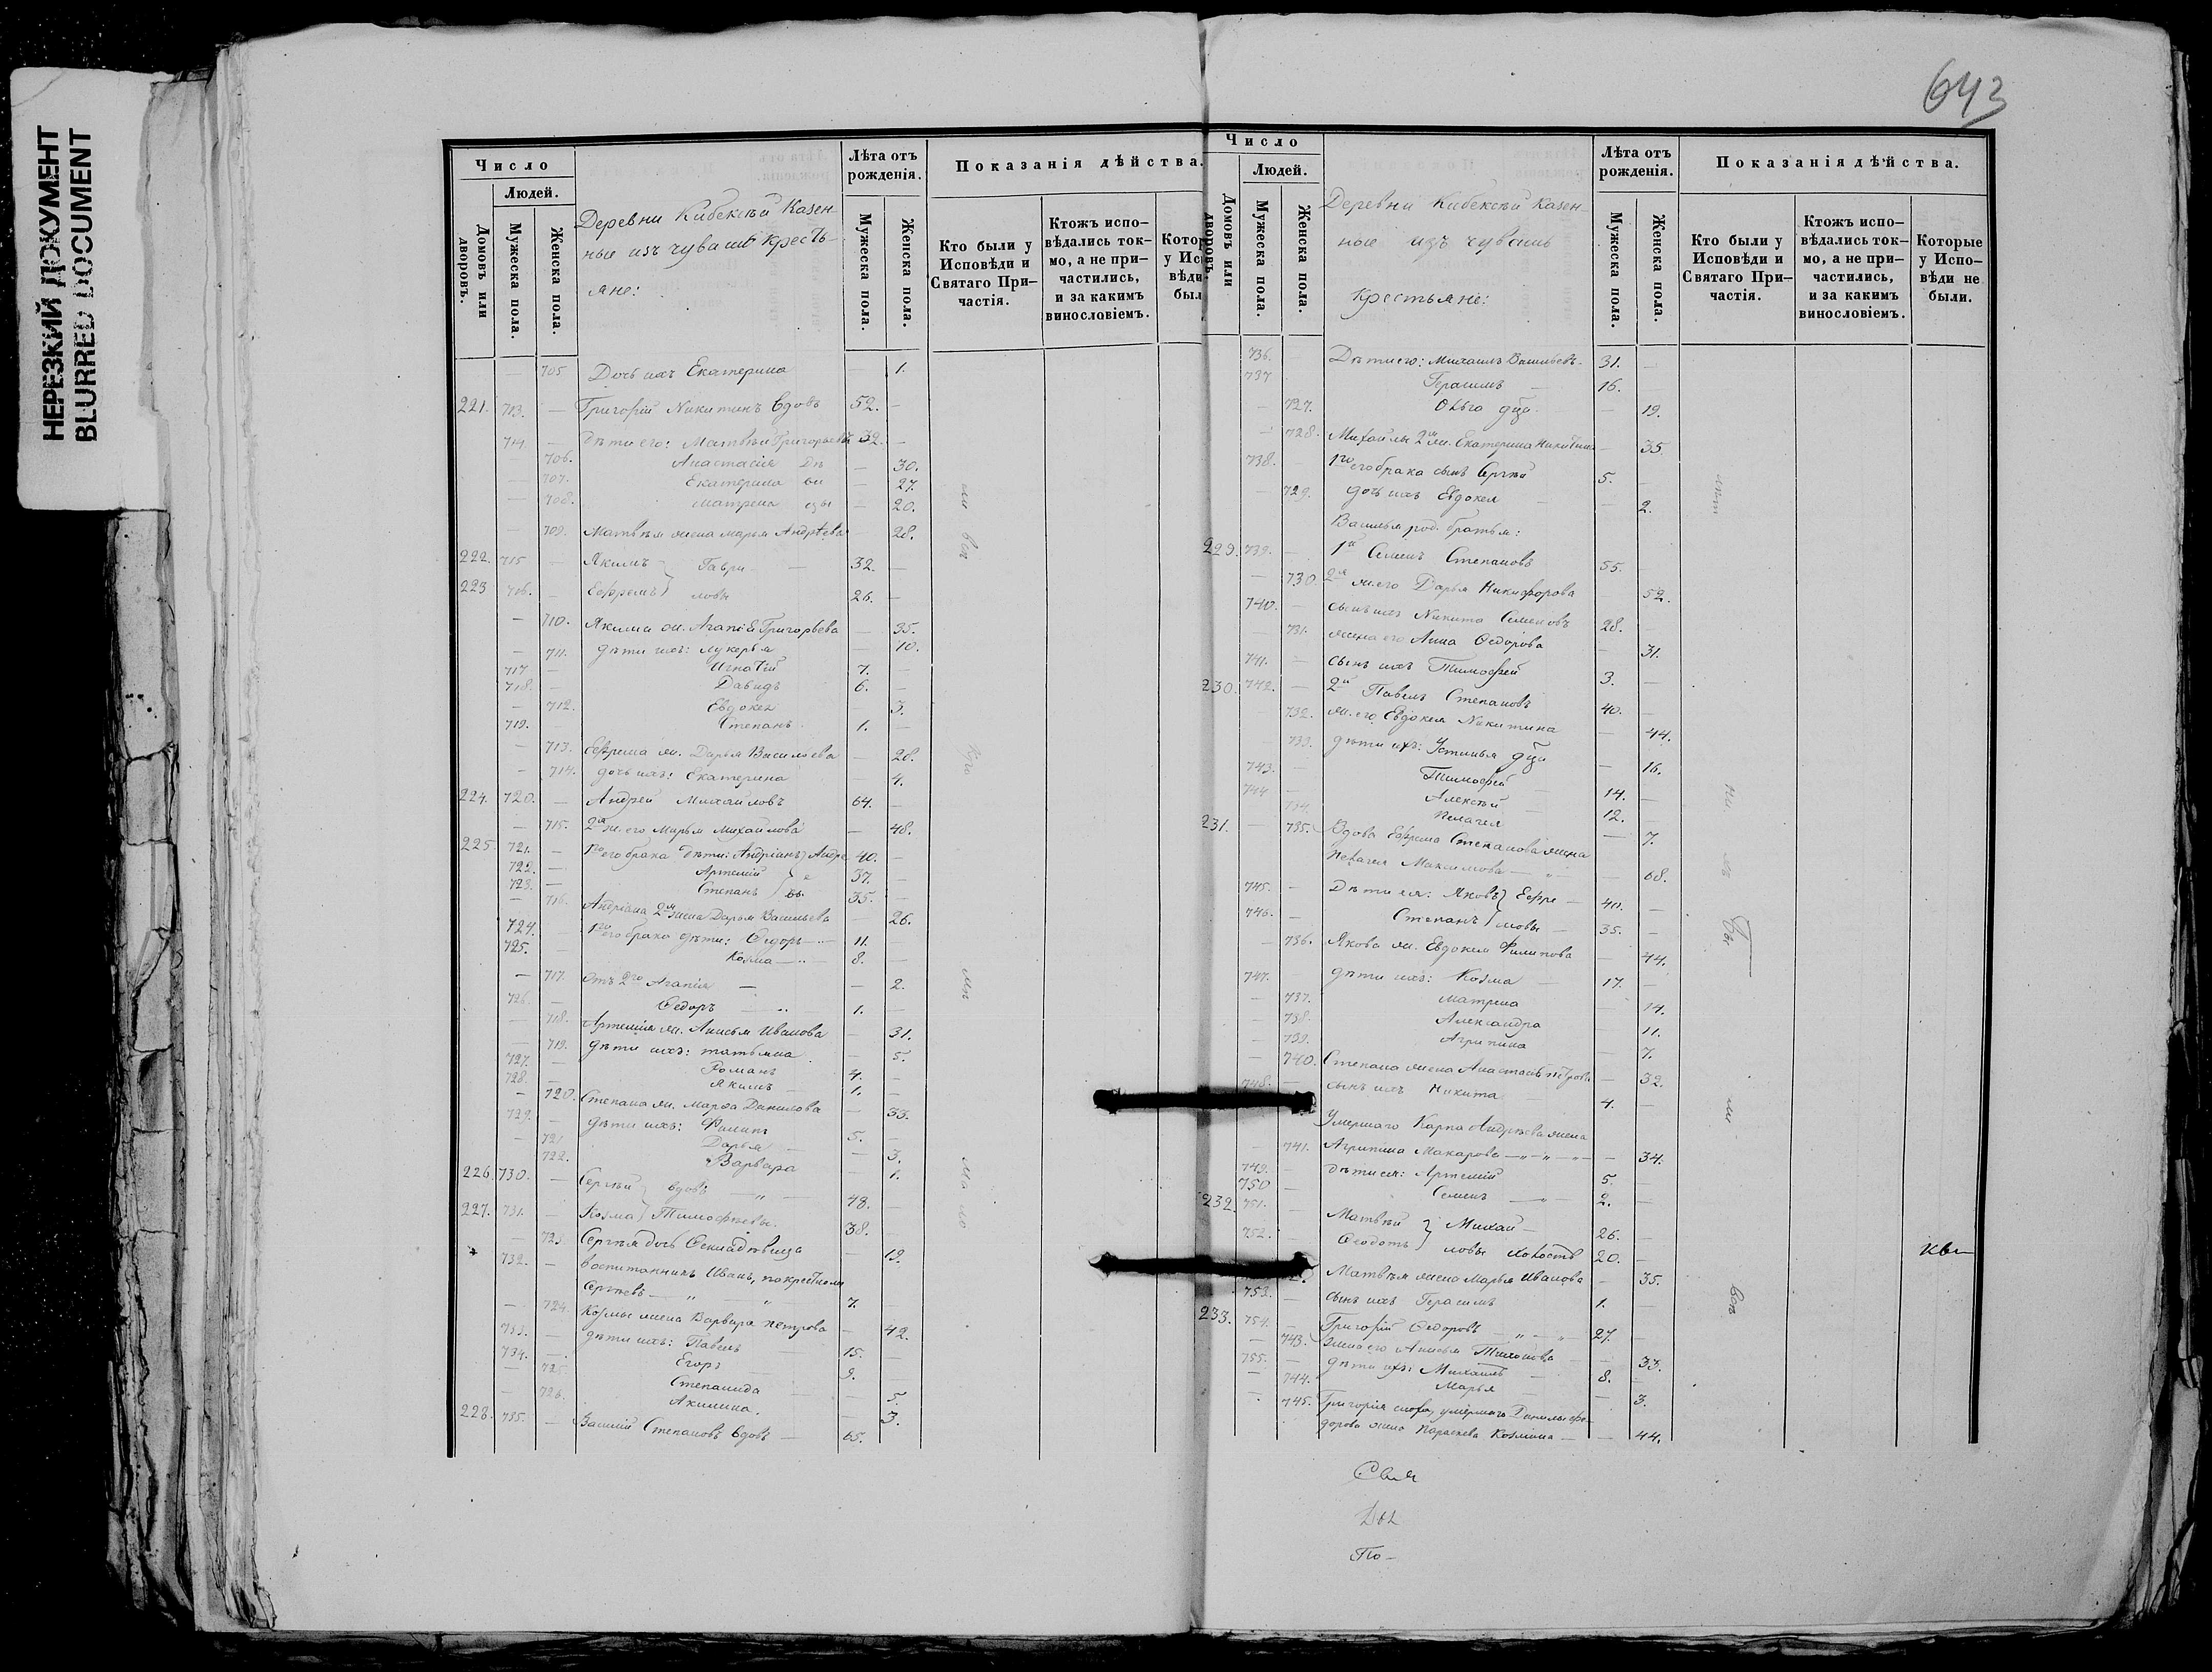 НЕРЕЗКИЙ ДОКУМЕНТ
BLURRED DOCUMENT
643
Число
Людей.
Домовъ или дворовъ.
Мужеска пола.
Женска пола.
Деревни Кибексѣй Казен-
ные изъ чувашъ кресть-
яне:
Лѣта отъ рожденія.
Мужеска пола.
Женска пола.
Показанія дѣйства.
Кто были у Исповѣди и Святаго При-частія.
Ктожъ испо-вѣдались ток-мо, а не при-частились, и за какимъ винословіемъ.
705 Дочь ихъ Екатерина — 1.
221. 713. — Григорій Никитинъ вдовъ 52. —
714. — дѣти его: Матвѣй Григорьевъ 32. —
706. Анастасія — 30.
707. Екатерина — 27.
708. Матрена — 20.
709. Матвѣя жена Марья Андрѣева 28.
222. 715 — Якимъ Гаври- 32. —
223 716. — Ефремъ ловы 26. —
— 710. Якима ж. Агапія Григорьева — 35.
— 711. дѣти ихъ: Лукерья — 10.
717 — Игнатій 7. —
718. — Давидъ 6. —
— 712. Евдокея — 3.
719. — Степанъ 1. —
— 713. Ефрема ж. Дарья Васильева — 28.
— 714. дочь ихъ: Екатерина — 4.
224. 720. — Андрей Михайловъ 64. —
— 715. 2я ж. его Марья Михайлова — 48.
225. 721. — 1го его брака дѣти: Андріанъ Андре 40. —
722. — Артемій е 37. —
723. — Степанъ вы 35. —
— 716. Андріана 2я жена Дарья Васильева — 26.
724. 1го его брака дѣти: Ѳедоръ 11. —
725. Козма 8. —
— 717. Отъ 2го Агапія — 2.
726. — Ѳедоръ 1. —
— 718. Артемія ж. Анисья Иванова — 31.
— 719. дѣти ихъ: Татьяна — 5.
727. — Романъ 4. —
728. — Якимъ 1. —
— 720. Степана ж. Марѳа Данилова — 33.
729. — дѣти ихъ: Филипъ 5. —
— 721 Дарья — 3.
722. Варвара — 1.
226. 730. — Сергѣй вдовъ 48. —
227. 731. — Козма Тимофѣевы. 38. —
— 723 Сергѣя дочь Ѳекла дѣвица — 19.
732. — воспитанникъ Иванъ, по крестному
Сергѣевъ 7. —
— 724. Козмы жена Варвара Петрова — 42.
733. — дѣти ихъ: Павелъ 15. —
734. — Егоръ 9. —
— 725. Степанида — 5.
— 726. Акилина. — 3.
228. 735. — Василій Степановъ вдовъ 65.
Число
Людей.
Домовъ или дворовъ.
Мужеска пола.
Женска пола.
Деревни Кибексѣй Казен-
ные изъ чувашъ
крестьяне:
Лѣта отъ рожденія.
Мужеска пола.
Женска пола.
Показанія дѣйства.
Кто были у Исповѣди и Святаго При-частія.
Ктожъ испо-вѣдались ток-мо, а не при-частились, и за какимъ винословіемъ.
Которые у Испо-вѣди не были.
736. — Дѣти его: Михаилъ Васильевъ 31. —
737 Герасимъ 16. —
— 727. Ольга — 19.
— 728. Михайлы 2я ж. Екатерина Никитина — 35
738. 1го его брака сынъ Сергѣй 5. —
— 729. дочь ихъ Евдокея — 2.
Василья род. братья:
229. 739. — 1й Семенъ Степановъ 55. —
— 730. 2я ж. его Дарья Никифорова — 52.
740. — сынъ ихъ Никита Семеновъ 28. —
— 731. жена его Анна Ѳедорова — 31.
741. — сынъ ихъ Тимофей 3. —
230. 742. — 2й Павелъ Степановъ 40. —
732. ж. его Евдокея Никитина — 44.
733. дѣти ихъ: Устинья — 16.
743. — Тимофей 14. —
744 Алексѣй 12. —
734 Пелагея — 7.
231. — 735. Вдова Ефрема Степанова жена
Пелагея Максимова — 68.
745. — Дѣти ея: Яковъ Ефре 40. —
746. — Степанъ мовы 35. —
— 736. Якова ж. Евдокея Филипова — 44.
747. — дѣти ихъ: Козма 17. —
— 737. Матрена — 14.
— 738. Александра — 11.
— 739. Агрипина — 7.
— 740. Степана жена Анастасія Петрова — 32.
748. — сынъ ихъ Никита 4. —
Умершаго Карпа Андрѣева жена
741. Агрипина Макарова — 34.
749. — дѣти ея: Артемій 5. —
750 — Семенъ 2. —
232 751. — Матвѣй Михай- 26. —
752. — Ѳеодотъ ловы холостъ 20. —
Матвѣя жена Марья Иванова — 35.
753. — сынъ ихъ Герасимъ 1. —
233. 754. — Григорій Ѳедоровъ 27. —
— 743. жена его Анисья Тихонова — 33.
755. — дѣти ихъ: Михаилъ 8. —
— 744. Марья — 3.
745. Григорія сноха, умершаго Данилы Ѳе-
дорова жена Параскева Козмина — 44.
Свя
По-